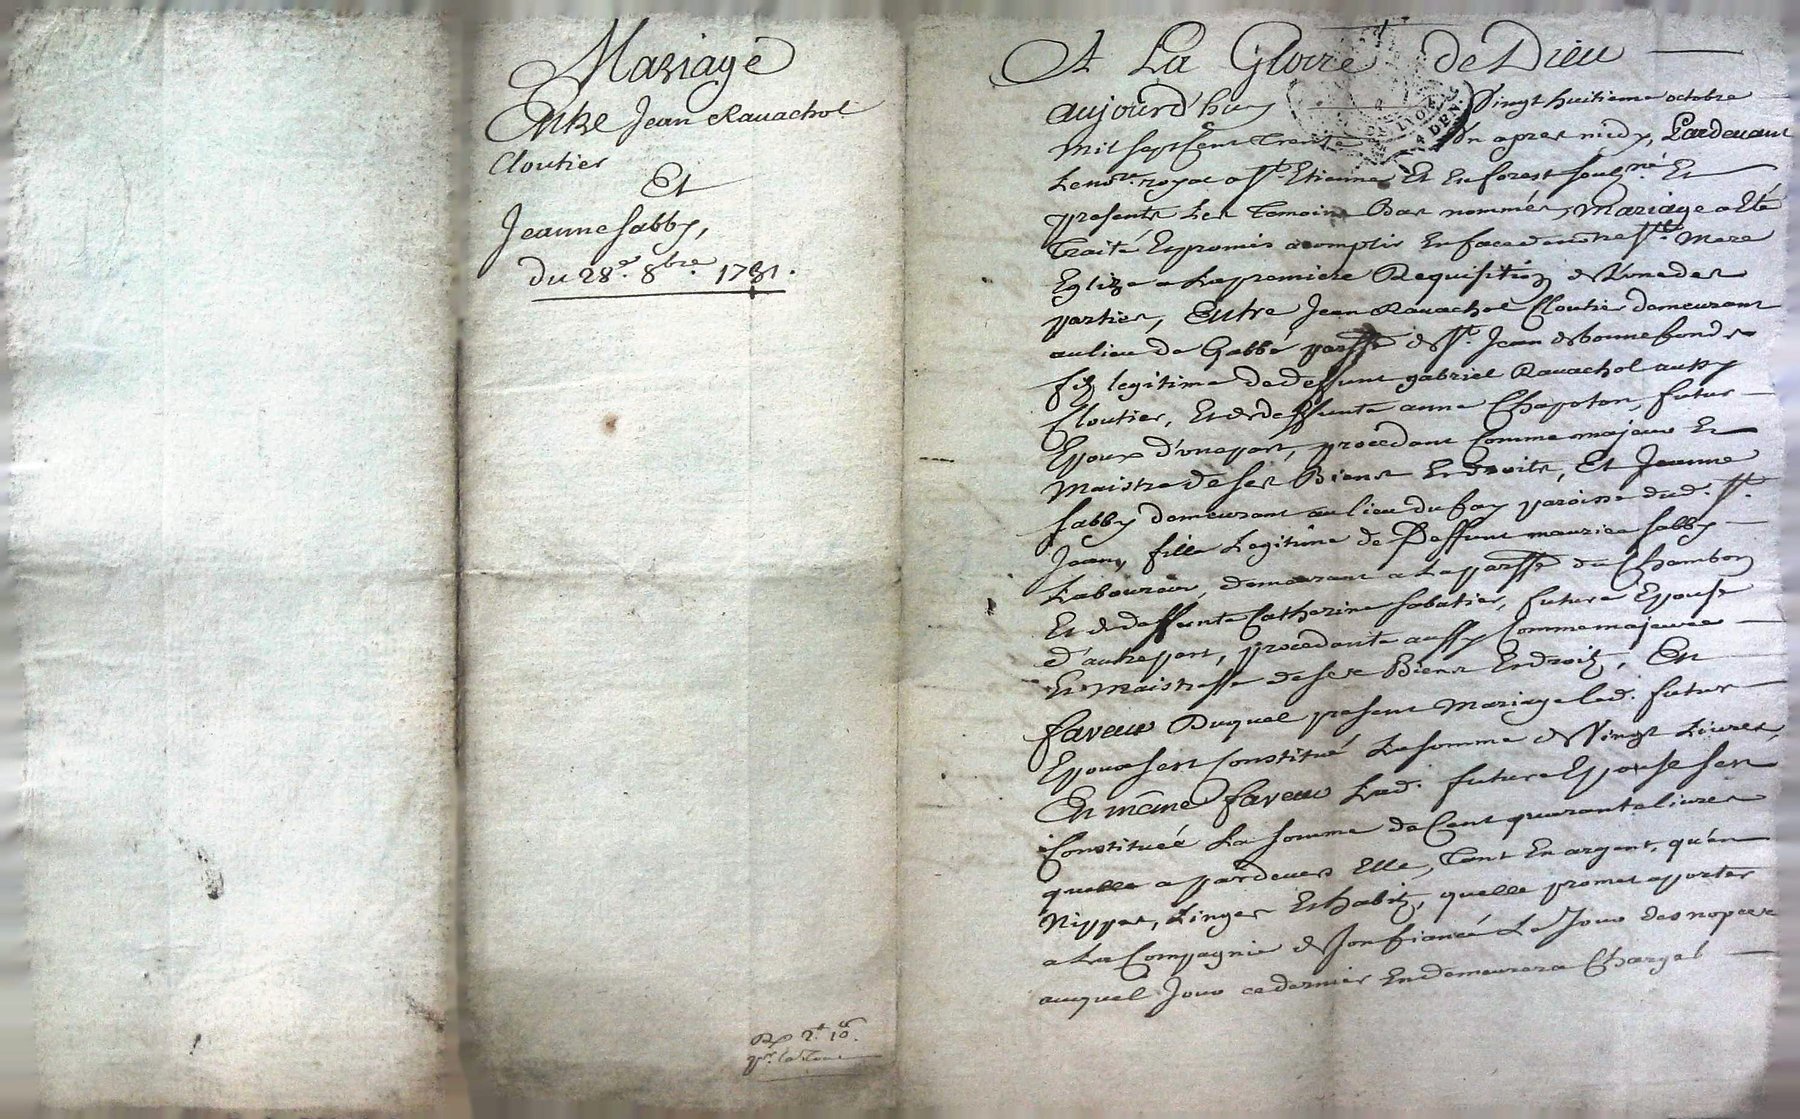 Mariage
Entre Jean Ravachol
Cloutier
Et
Jeanne Sabby,
du 28e. 8bre. 1731.
A La Gloire de Dieu
aujourd'huy Vingt huitieme octobre
Mil sept Cent Trente Un apres midy, Pardevant
Le nore. royal a St. Etienne Et En forest soubz.né Et
presents Les Temoins Bas nommés, Mariage a Eté
Traité Et promis acomplir En face de nostre Ste. Mere
Eglize a La premiere Requisition de L'une des
parties, Entre Jean Ravachol Cloutier demeurant
au lieu de Gabbé parsse de St. Jean de bonnefonds
fiz legitime de deffunt gabriel Ravachol aussy
Cloutier, Et de deffunte anne Chapoton, futur
Epoux d'une part, procedant Comme majeur Et
Maistre de ses Biens Et droits, Et Jeanne
Sabby demeurant au lieu du fay paroisse dud. St.
Jean, fille Legitime de Deffunt maurice Sabby
Laboureur, demeurant a La parsse du Chambon
Et de deffunte Catherine Sabatier, future Epouse
d'autre part, procedante aussy Comme majeure
Et Maistresse de ses Biens Et droitz, En
faveur Duquel present Mariage led. futur
Epoux s'est Constitué La somme de Vingt Livres,
En même faveur Lad. future Epouse s'est
Constituée La somme de Cent quarante livres
quelle a pardevers Elle, Tant En argent, qu'en
Nippes, Linges Et habitz, quelle promet aporter
a La Compagnie de son fiancé Le Jour des nopces
auquel Jour ce dernier En demeurera Chargé